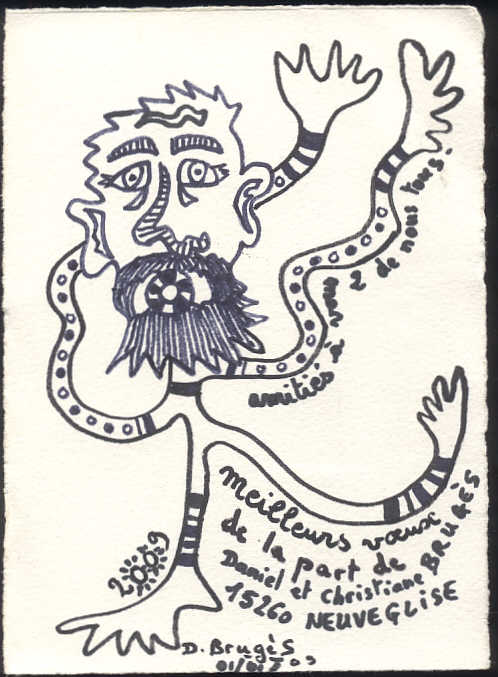 amitiés à vous 2 de nous tous.
Meilleurs vœux
de la part de
Daniel et Christiane BRUGÈS
15260 NEUVEGLISE
2009
D. Brugès
01/01/09